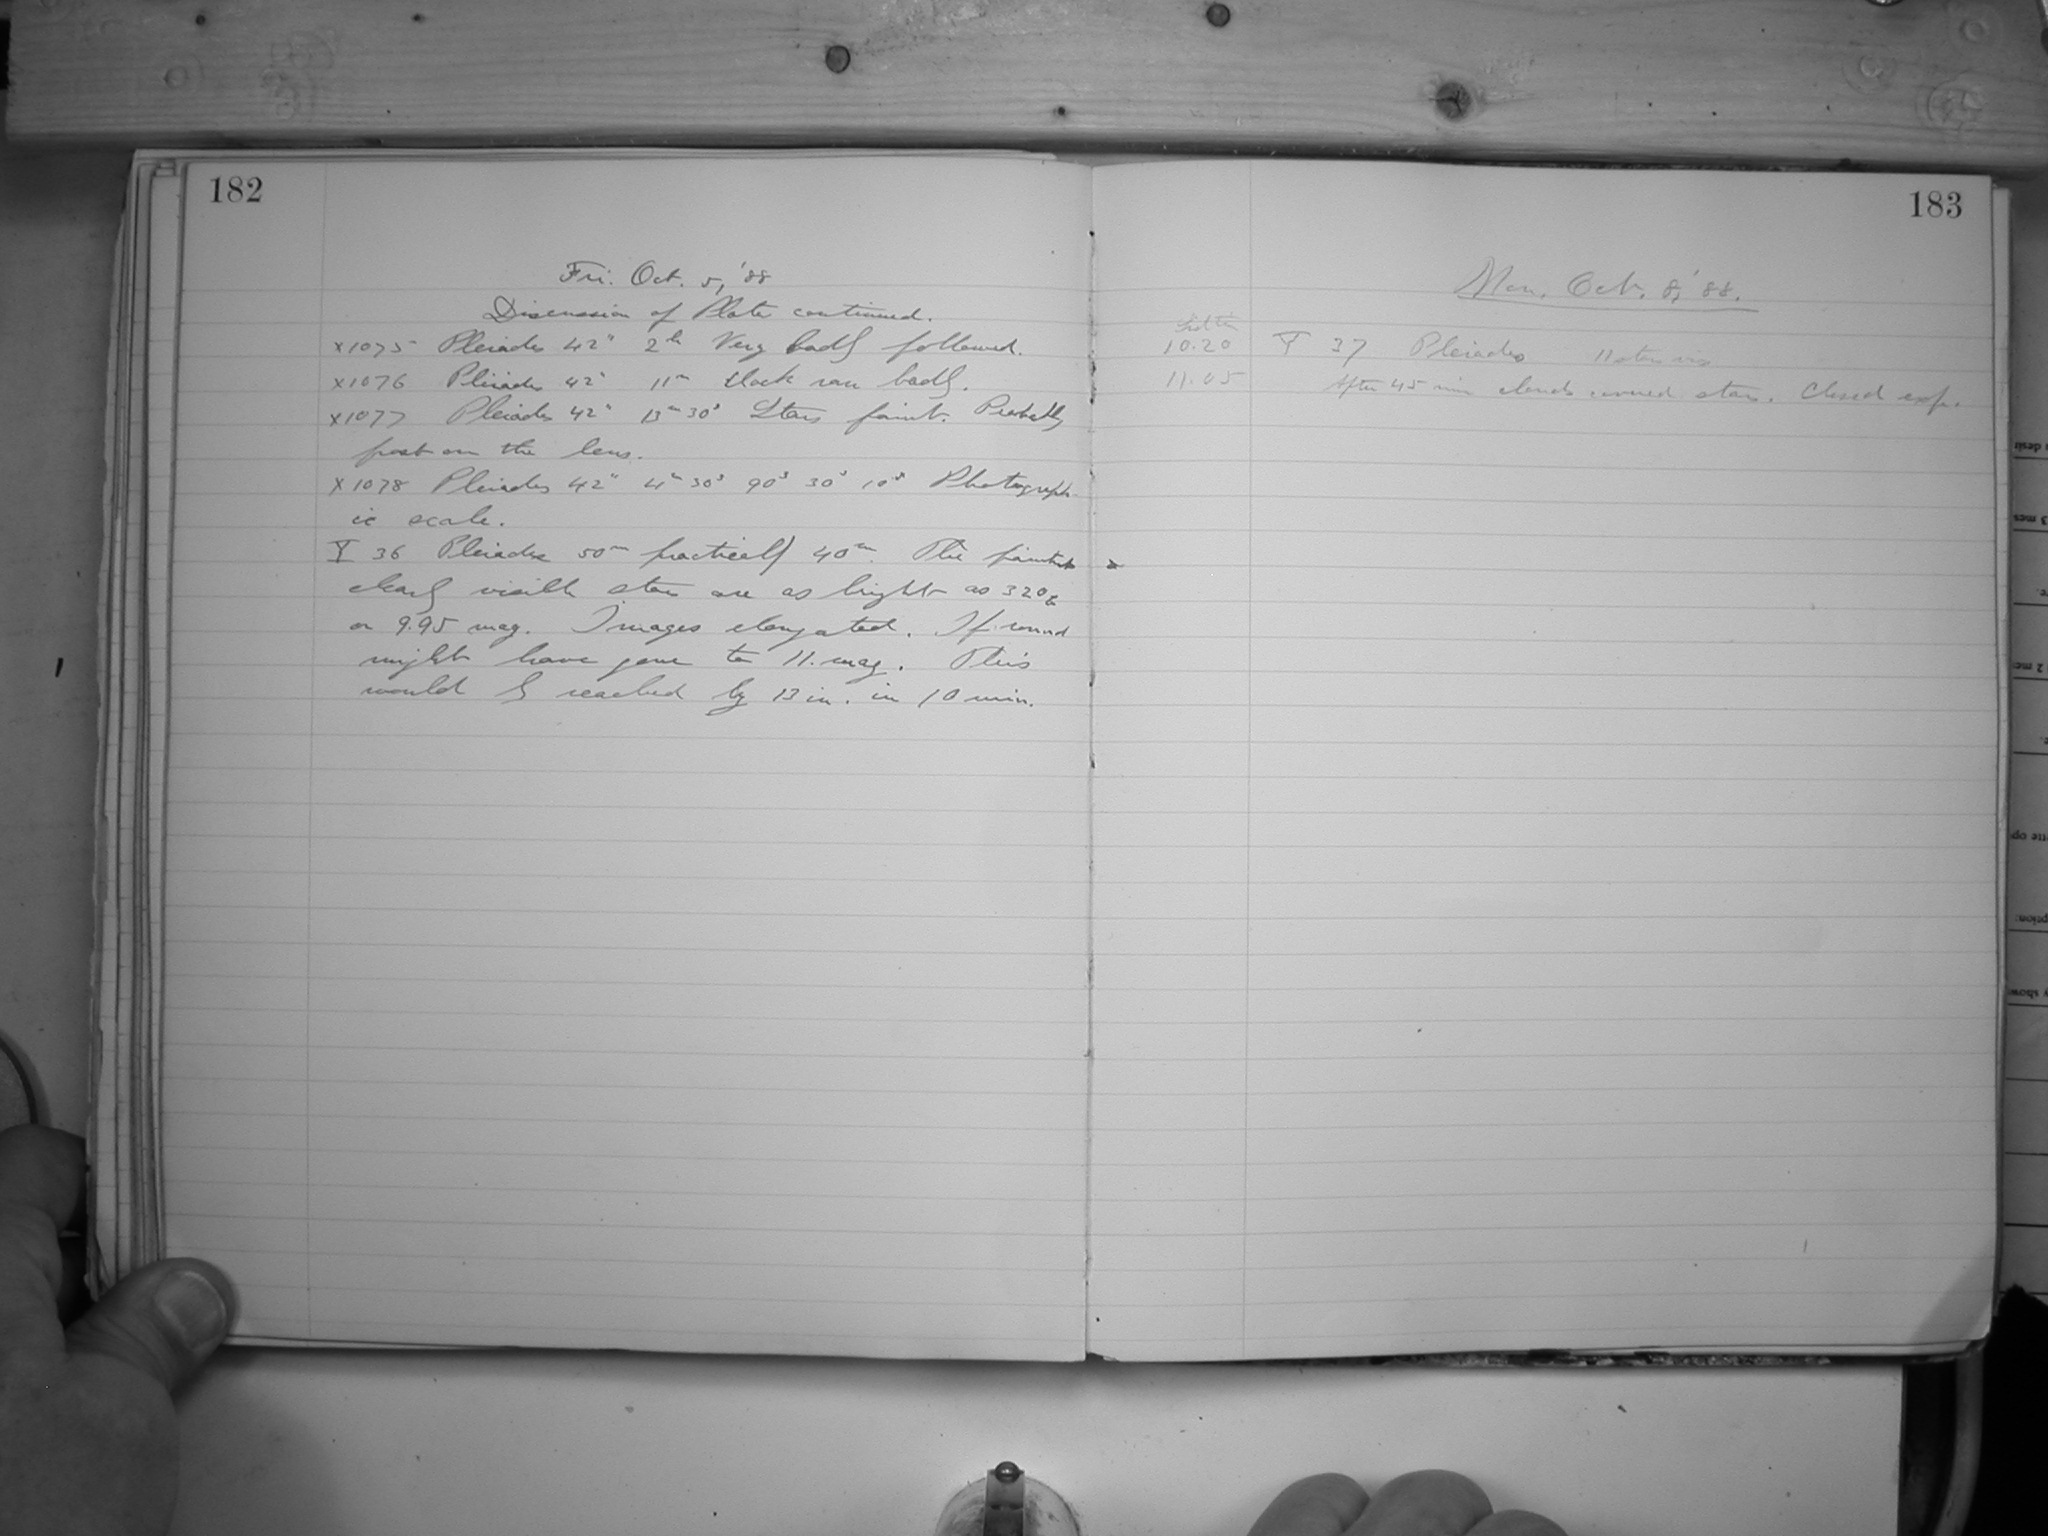 182
Fri. Oct. 5, '88
Discussion of Plates continued.
X1075 Pleiades 42" 2h Very badly followed.
X1076 Pleiades 42" 11m Clock ran badly.
X1077 Pleiades 42" 13m 30s Stars faint. Probably
frost on the lens.
X1078 Pleiades 42" 4m 30s 90s 30s 10s Photograph-
ic scale.
Y 36 Pleiades 50m practically 40m. The faintest
clearly visible stars are as bright as 320
or 9.95 mag. Images elongated. If round
might have gone to 11. mag. This
would be reached by 13 in. in 10 min.
183
Mon. Oct. 8, '88.
10.20 Y 37 Pleiades 11 stars vis
11.05 After 45 min clouds covered stars. Closed exp.